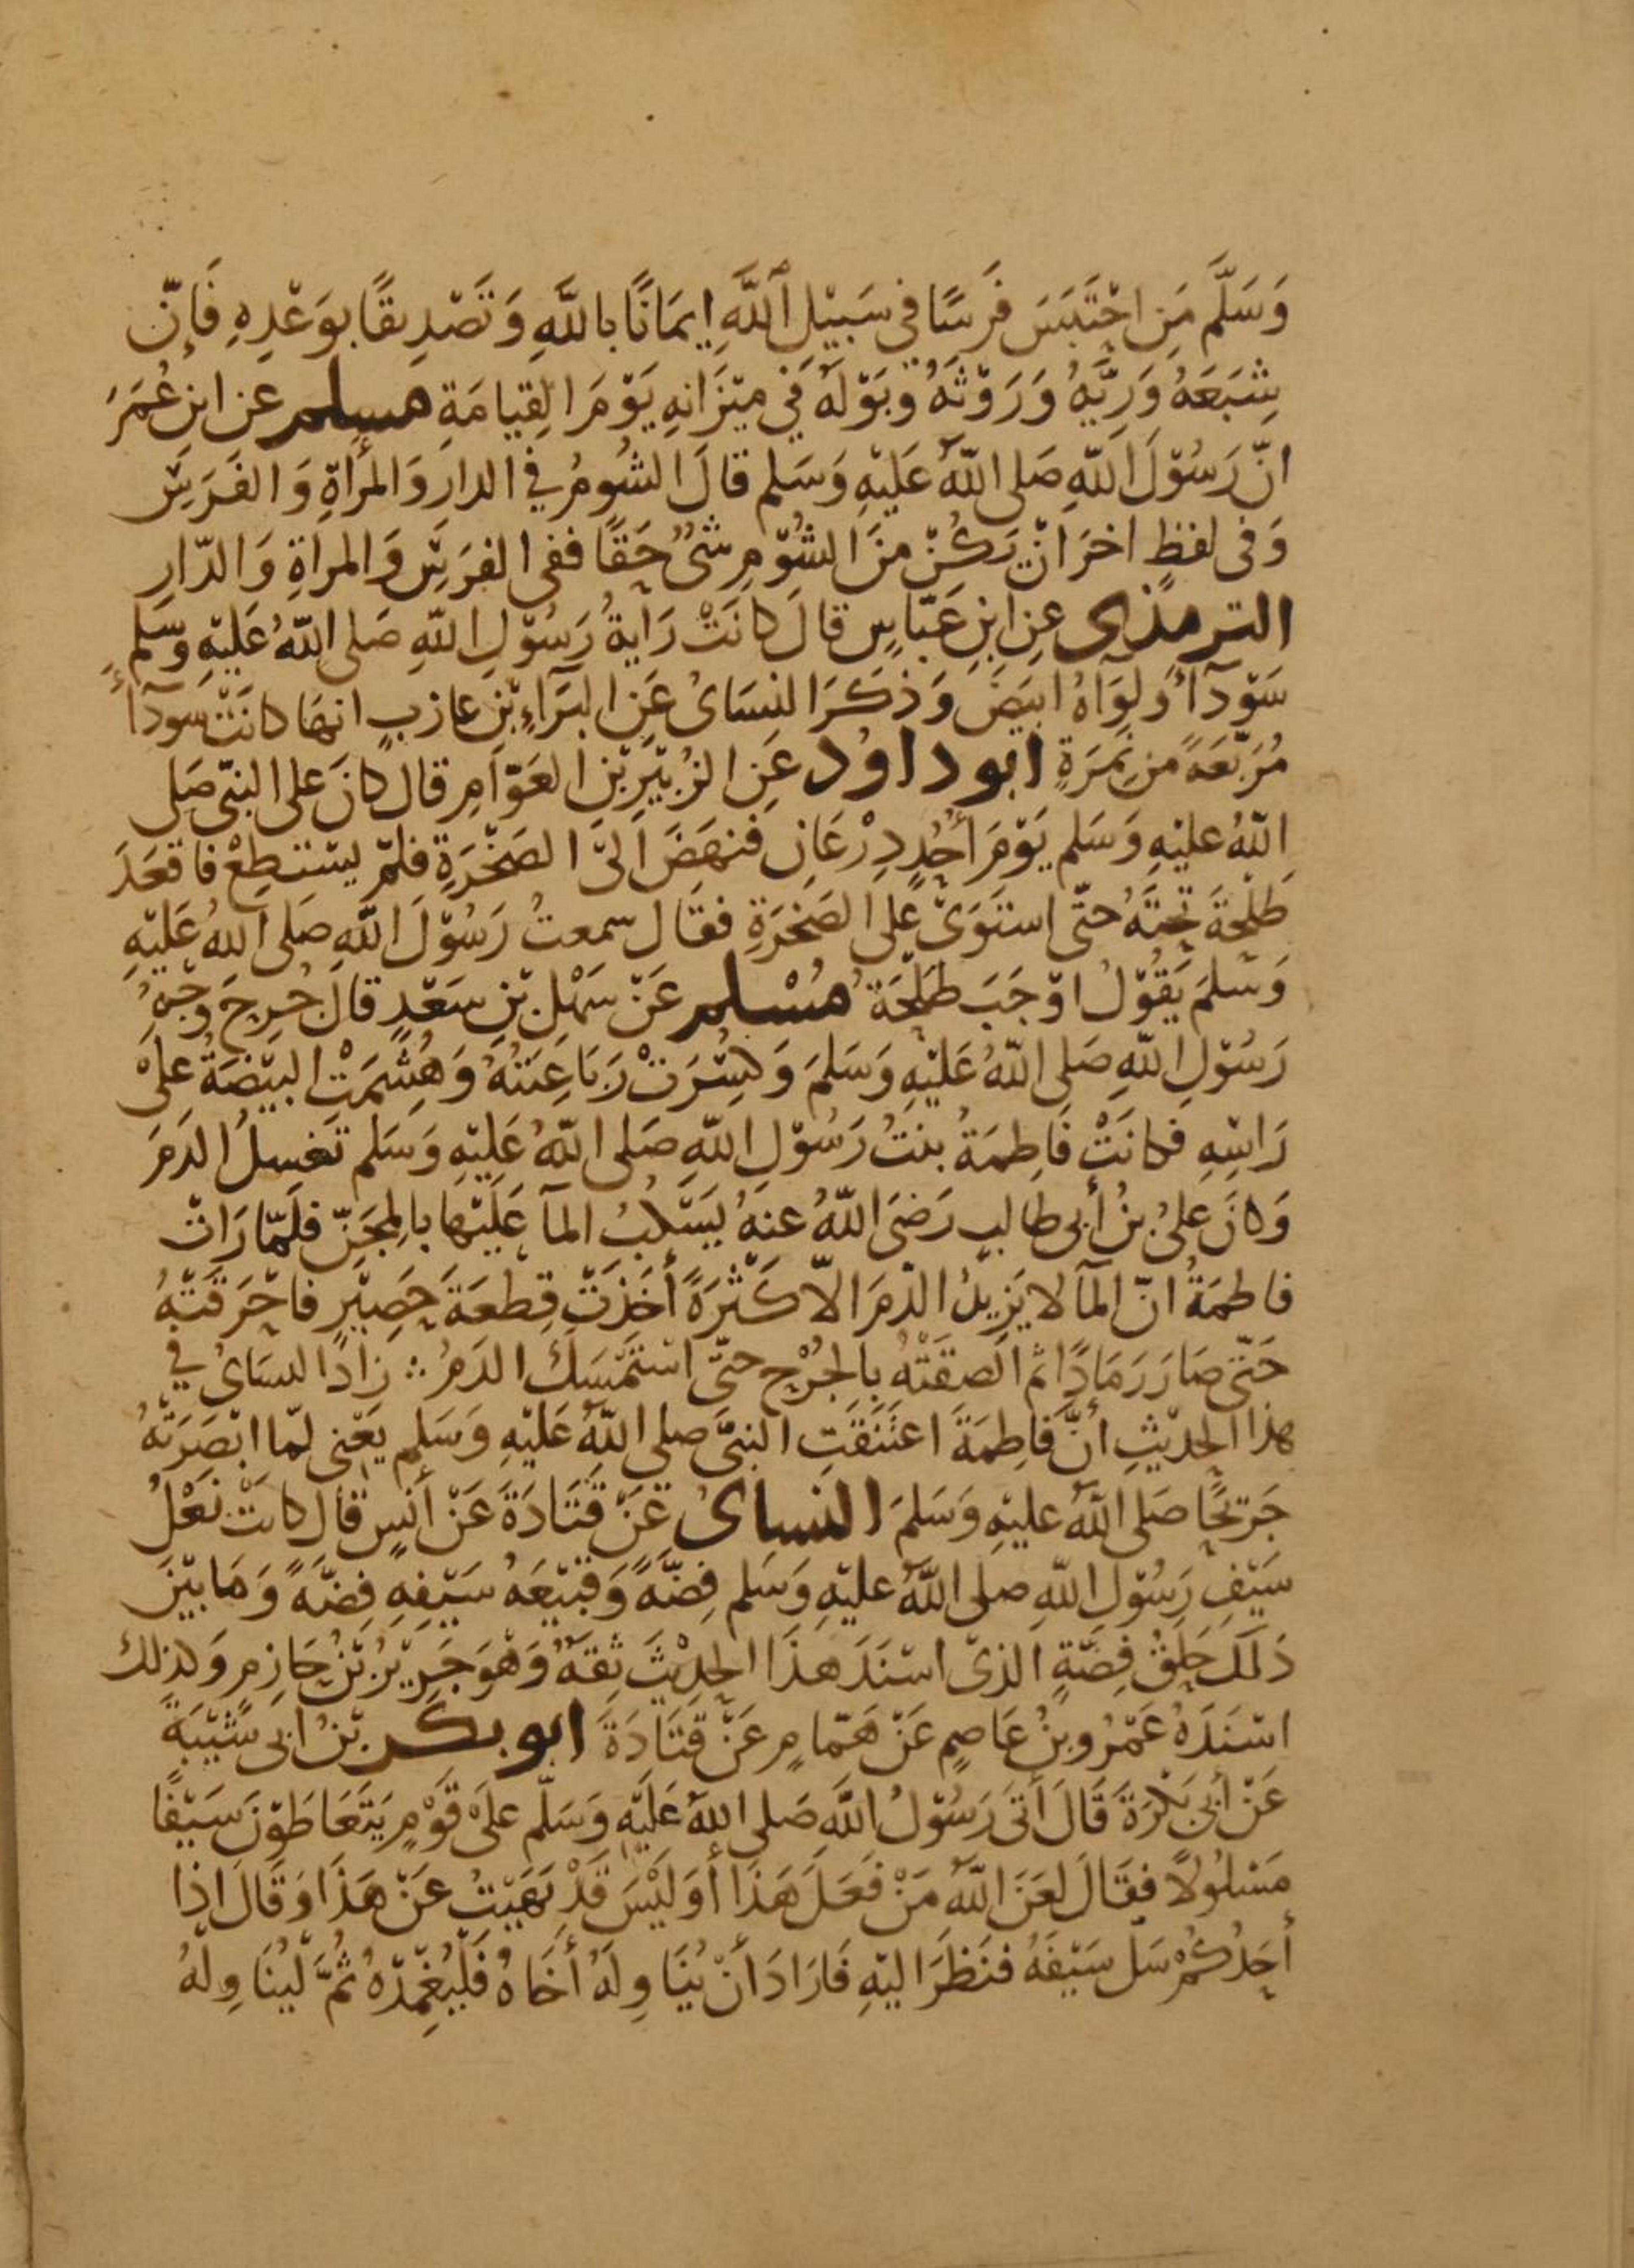 وَسَلَّمَ مَنِ احْتَبَسَ فَرَسًا في سَبيْلِ اللَّهِ إيمَانًا باللَّهِ وَتَصْدِيقًا بوَعْدِهِ فَإنّ
شِبَعَهُ وَرِيَّهُ وَرَوْثَهُ وَبَوْلَهُ في ميْزَانِهِ يَوْمَ القِيامَةِ مسلم عن ابنِ عُمَرَ
انّ رَسُوْلَ اللّهِ صَلى اللّهُ عَلَيْهِ وَسَلم قالَ الشُومُ في الدارِ وَالمرأةِ وَالفَرَسِ
وَفى لفظٍ اخرَ انْ يَكُنْ منَ الشُوْمِ شىْءٌ حَقًا ففى الفرَسِ وَالمراةِ وَالدّارِ
الترمذى عنِ ابنِ عَبّاسٍ قالَ كانَتْ رَايةُ رَسُوْلِ اللّهِ صَلى اللّهُ عَلَيْهِ وَسَلم
سَوْدآءَ وَلِوَآهُ ابيَضَ وَذكَرَ النسَائُ عَنِ البَرَآءِ بْنِ عازبٍ انهَا كانَتْ سَودآءَ
مُرَبّعَةً من نمَرَةٍ ابو داوُد عَنِ الزبُيْرِ بْنِ العَوّامِ قال كانَ على النبّى صَلى
اللّهُ عليْهِ وَسَلم يَوْمَ أُحُدٍ دِرْعَانِ فنهَضَ الىَ الصَخْرَةِ فلمْ يسْتطِعْ فاقعَدَ
طلْحَةَ تحتَهُ حتّى استَوَىْ على الصَخرَةِ فقال سمعتُ رَسُوْلَ اللّهِ صَلى اللّهُ عَلَيْهِ
وَسَلمَ يَقُوْلُ اوْجَبَ طَلْحَةُ مُسْلم عَنْ سَهْلِ بْنِ سَعْدٍ قالَ جُرِحَ وَجْهُ
رَسُوْلِ اللّهِ صَلى اللّهُ عَلَيْهِ وَسَلمَ وَكسِرَتْ رَبَاعِيَتُهُ وَهُشِمَتْ البَيْضَةُ علىْ
رَاسِهِ فكانَتْ فَاطِمَةُ بنتُ رَسُوْلِ اللّهِ صَلى اللّهُ عَلَيْهِ وَسَلم تَغسِلُ الدَمَ
وَكانَ علىُ بنُ أبى طالبٍ رَضىَ اللّهُ عنهُ يَسْكبُ المآ عَلَيْها بالمِجَنّ فلَمّا رَاتْ
فاطمَةُ انّ المآ لا يَزيدُ الدّمَ الاّ كَثْرَةً أخَذَتْ قِطعَةَ حَصِيْرٍ فاَحْرَقَتْهُ
حَتّى صَارَ رَمَادًا ثم الَصقَتْهُ بالجُرْحِ حتّى اسْتَمْسَكَ الدَمُ ∴ زادَ النسَائُ في
هذا الحدِيْثِ انَّ فَاطِمَةَ اعتَنَقَتِ النبىَّ صلى اللّهُ عَلَيْهِ وَسَلم يَعْنى لمّا ابْصَرَتْهُ
جَرْيحًا صَلى اللّهُ عليْهِ وَسَلمَ النساىُ عَنْ قَتَادَةَ عَنْ أنسٍ قال كانَتْ نَعْلُ
سَيْفِ رَسُوْلِ اللّهِ صلى اللّهُ عليْهِ وَسَلم فِضّةً وَقبيْعَهُ سَيْفهِ فِضّةً وَمَا بيْنَ
ذلكَ حَلقُ فِضّةٍ الذىْ اسْنَدَ هذَا الحديْثَ ثِقَةٌ وَهْوَ جَرِيْرُ بْنُ حَازمٍ وَكذلك
اسْنَدَهُ عَمْرُو بنُ عَاصِمٍ عَنْ هَمّامٍ عَنْ قَتَادَةَ ابو بكر بْنُ ابى شَيْبَةَ
عَنْ أبى بَكْرَةَ قَالَ أتىَ رَسُوْلُ اللّهِ صَلى اللّهُ عَلَيْهِ وَسَلّم علَى قَوْمٍ يَتَعَاطَوْنَ سَيْفًا
مَسْلوُلاً فقَالَ لعَنَ اللّهُ مَنْ فَعَلَ هَذَا أوَلَيْسَ قَدْ نَهَيْتُ عَنْ هَذَا وَقَالَ اذا
أحَدُكُمْ سَلّ سَيْفَهُ فنَظَرَ اليْهِ فَارَادَ أنْ يُنَاوِلَهُ أخَاهُ فَلْيُغْمِدْهُ ثُمَّ ليُنَاوِلْهُ